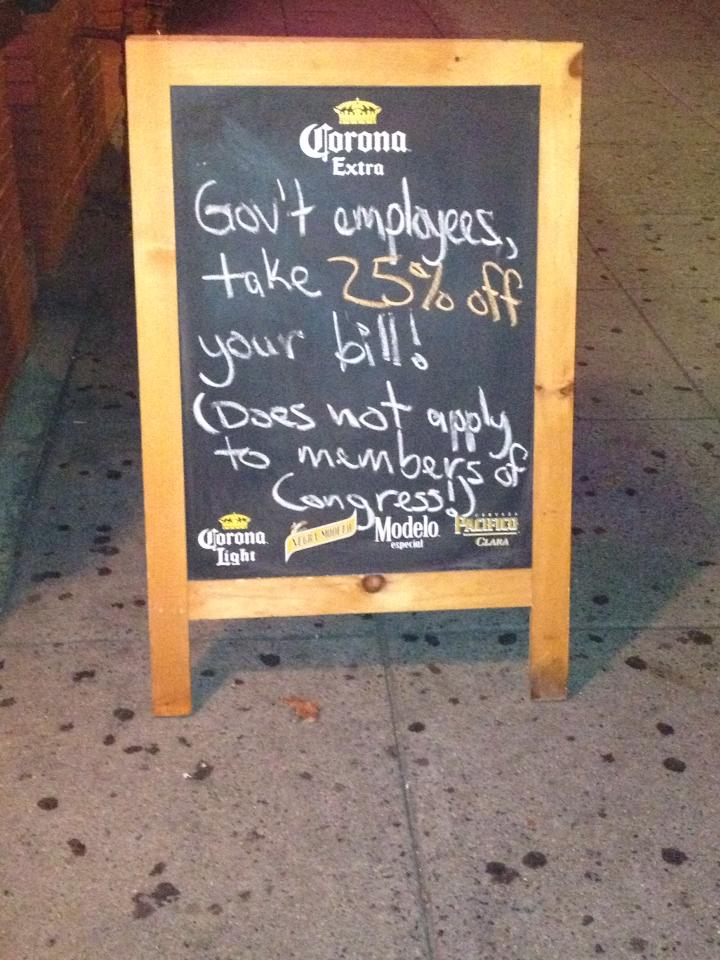 Corona
Extra
Gov't employees,
take 25% off
your bill!
(Does not apply
to members of
Congress!)
Corona
Light
NEGRA MODELO
Modelo
especial
CERVEZA
PACIFICO
CLARA